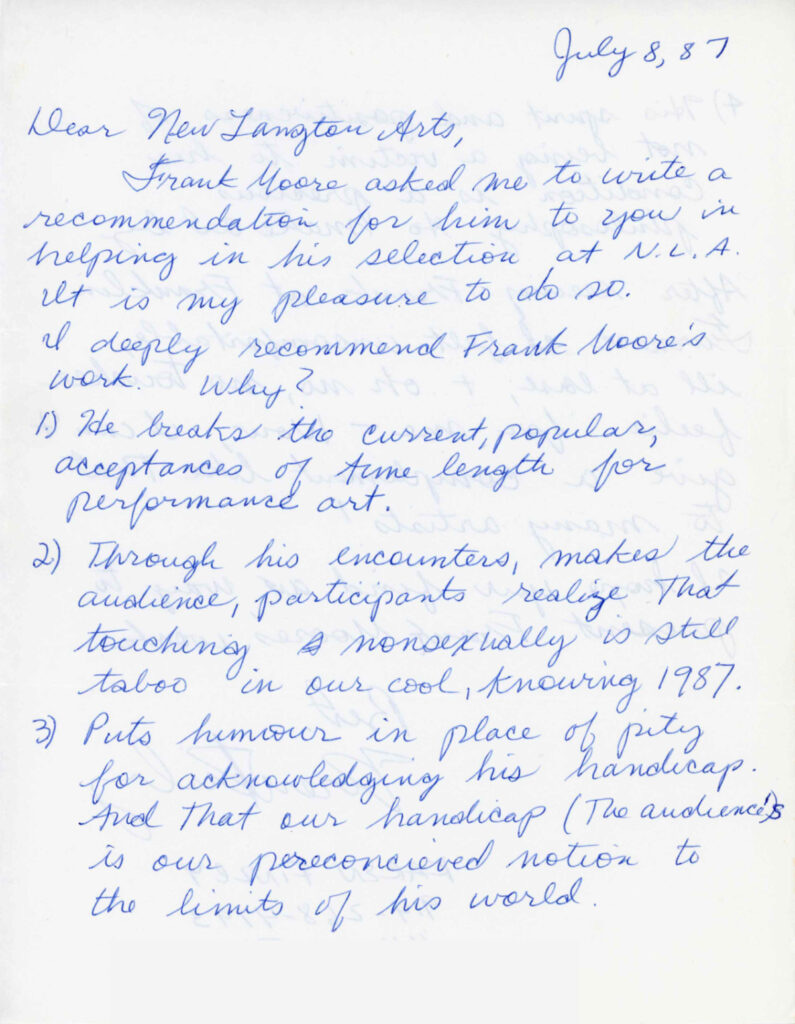 July 8, 87
Dear New Langton Arts,
Frank Moore asked me to write a
recommendation for him to you in
helping in his selection at N.L.A.
It is my pleasure to do so.
I deeply recommend Frank Moore's
work. Why?
1.) He breaks the current, popular,
acceptances of time length for
performance art.
2) Through his encounters, makes the
audience, participants realize That
touching nonsexually is still
taboo in our cool, knowing 1987.
3) Puts humour in place of pity
for acknowledging his handicap.
And That our handicap (The audience's)
is our pereconcieved notion to
the limits of his world.